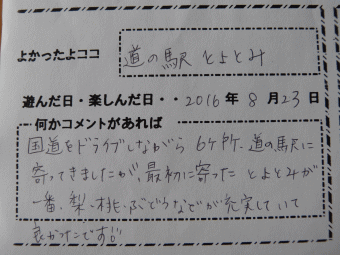 よかったよココ 道の駅 とよとみ
遊んだ日・楽しんだ日・・2016年 8月23日
何かコメントがあれば
国道をドライブしながら 6ケ所、道の駅に
寄ってきましたが、最初に寄った とよとみが
一番、梨、桃、ぶどうなどが充実していて
良かったです!!